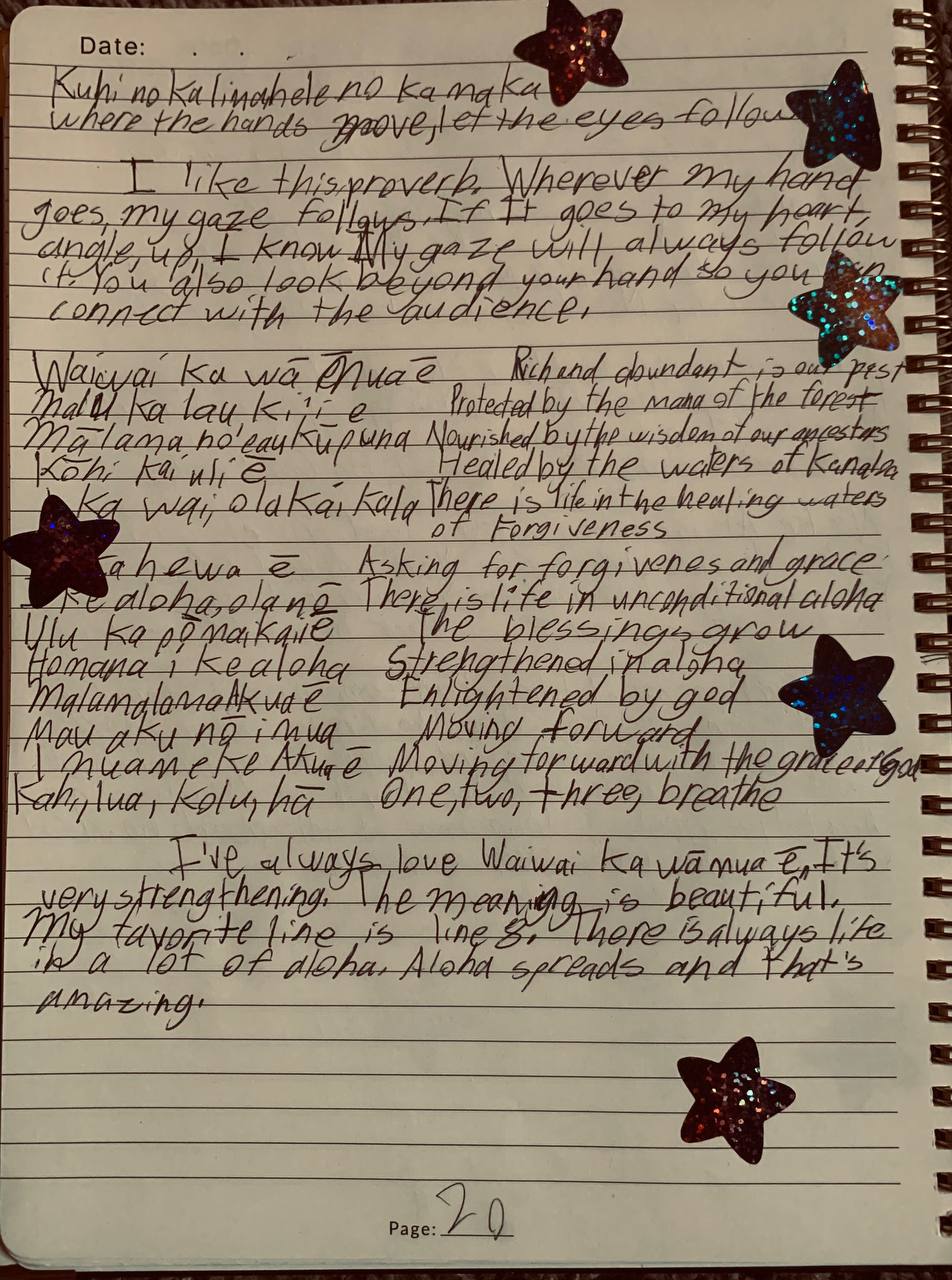 Date: . . .
Kuhi no ka lima hele no ka maka
where the hands move, let the eyes follow
I like this proverb. Wherever my hand
goes, my gaze follows. If It goes to my heart,
angle, up, I know My gaze will always follow
it. You also look beyond your hand so you
connect with the audience.
Waiwai ka wā mua ē Rich and abundant is our past
Malu ka lau ki'i e Protected by the mana of the forest
Mālama no'eau kūpuna Nourished by the wisdom of our ancestors
Kōhi kai uli ē Healed by the waters of Kanaloa
Ka wai, ola kai kala There is life in the healing waters
of Forgiveness
ahewa ē Asking for forgivenes and grace
ke aloha, ola nō There is life in unconditional aloha
Ulu ka pōmaikai ē The blessings grow
Homana'i ke aloha Strengthened in aloha
Malamalama Akua ē Enlightened by god
Mau aku nō i mua Moving forward
I mua me ke Akua ē Moving forward with the grace of god
Kahi, lua, kolu, hā One, two, three, breathe
I've always love Waiwai ka wā mua ē, It's
very strengthening. The meaning is beautiful.
My favorite line is line 8. There is always life
in a lot of aloha. Aloha spreads and that's
amazing.
Page: 20